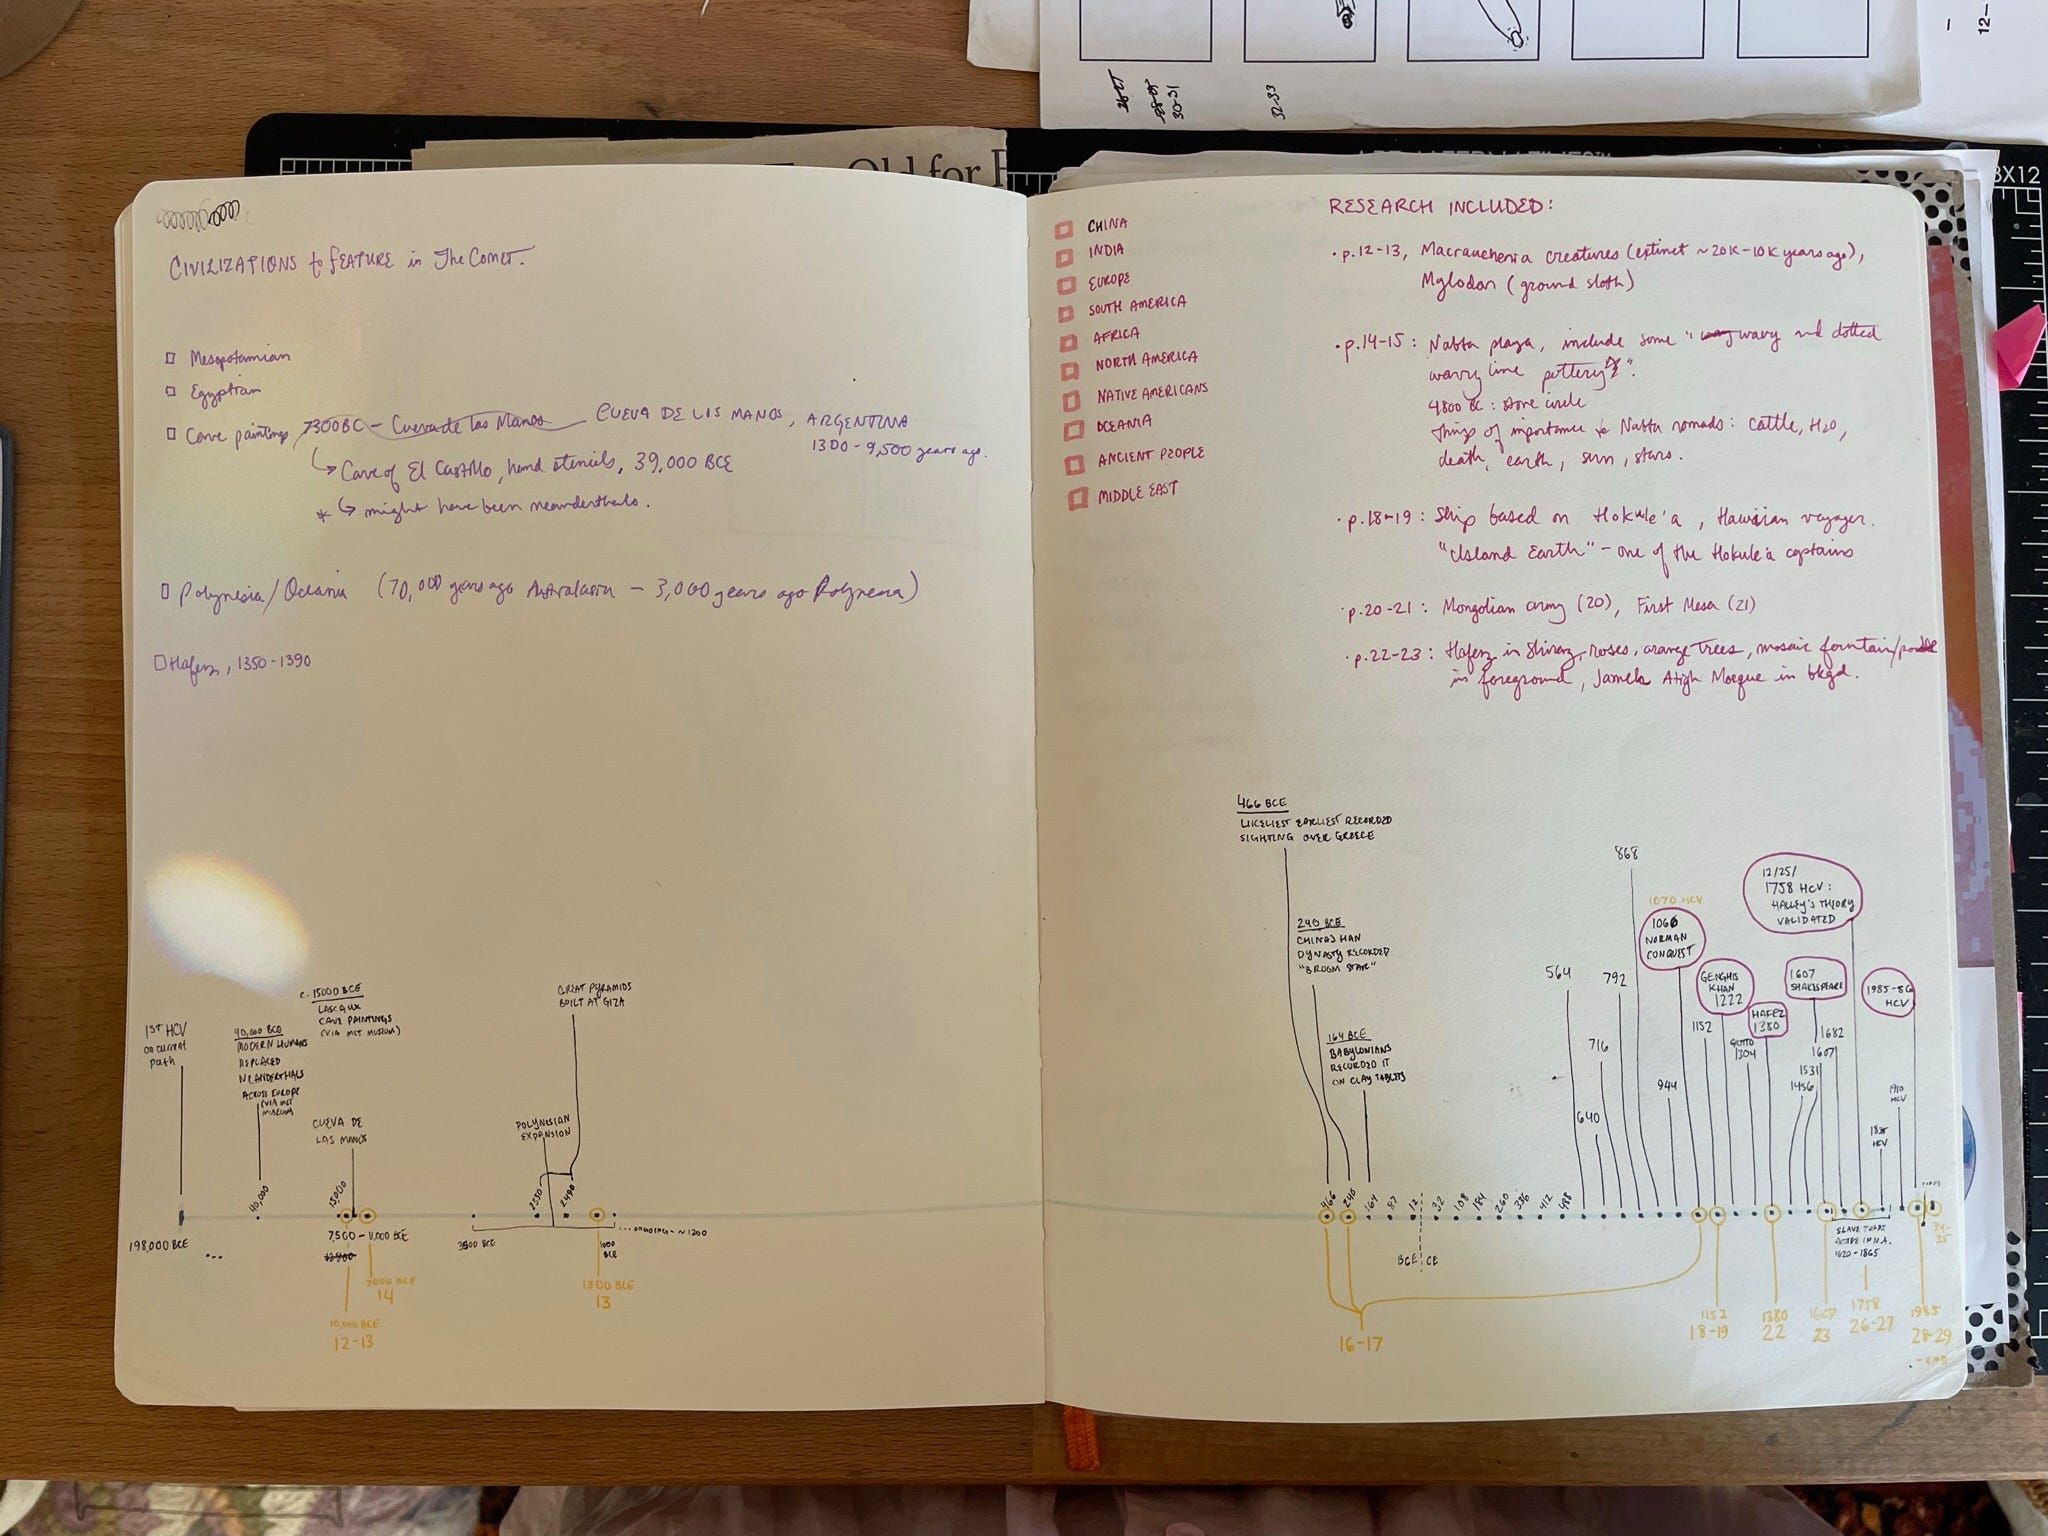 28-29
30-31
32-33
12-
Old for
8X12
CIVILIZATIONS to FEATURE in The Comet.
Mesopotamian
Egyptian
Cave paintings, 7300BC - Cueva de las Manos CUEVA DE LAS MANOS, ARGENTINA
1300 - 9,500 years ago.
Cave of El Castillo, hand stencils, 39,000 BCE
* might have been neanderthals.
Polynesia/Oceania (70,000 years ago Australasia - 3,000 years ago Polynesia)
Hafez, 1350-1390
1ST HCV
on current
path
40,000 BCE
MODERN HUMANS
REPLACED
NEANDERTHALS
ACROSS EUROPE
(VIA MET
MUSEUM)
C. 15000 BCE
LASCAUX
CAVE PAINTINGS
(VIA MET MUSEUM)
CUEVA DE
LAS MANOS
GREAT PYRAMIDS
BUILT AT GIZA
POLYNESIAN
EXPANSION
40,000
15,000
2550
2490
198,000 BCE
...
7,500 - 11,000 BCE
3500 BCE
1000
BCE
... ONGOING - ~1200
7000 BCE
14
10,000 BCE
12-13
1300 BCE
13
CHINA
INDIA
EUROPE
SOUTH AMERICA
AFRICA
NORTH AMERICA
NATIVE AMERICANS
OCEANIA
ANCIENT PEOPLE
MIDDLE EAST
RESEARCH INCLUDED:
· p.12-13, Macrauchenia creatures (extinct ~20K-10K years ago),
Mylodon (ground sloth)
· p.14-15: Nabta playa, include some "wavy and dotted
wavy line pottery".
4800 BC: stone circle
things of importance to Nabta nomads: cattle, H2O,
death, earth, sun, stars.
· p.18-19: Ship based on Hokule'a, Hawaiian voyager.
"Island Earth" - one of the Hokule'a captains
· p.20-21: Mongolian army (20), First Mesa (21)
· p.22-23: Hafez in Shiraz, roses, orange trees, mosaic fountain/
in foreground, Jameh Atigh Mosque in bkgd.
466 BCE
LIKELIEST EARLIEST RECORDED
SIGHTING OVER GREECE
240 BCE
CHINA'S HAN
DYNASTY RECORDED
"BROOM STAR"
164 BCE
BABYLONIANS
RECORDED IT
ON CLAY TABLETS
564
640
716
792
868
944
1070 HCV
1066
NORMAN
CONQUEST
1152
GENGHIS
KHAN
1222
GIOTTO
1304
HAFEZ
1380
12/25/
1758 HCV:
HALLEY'S THEORY
VALIDATED
1607
SHAKESPEARE
1456
1531
1607
1682
1835
HCV
1910
HCV
1985-86
HCV
466
240
164
87
12
32
108
184
260
336
412
488
BCE CE
SLAVE TRADE
ACTIVE IN N.A.
1620-1865
34-
35
16-17
1152
18-19
1380
22
1607
23
1758
26-27
1985
28-29
- END